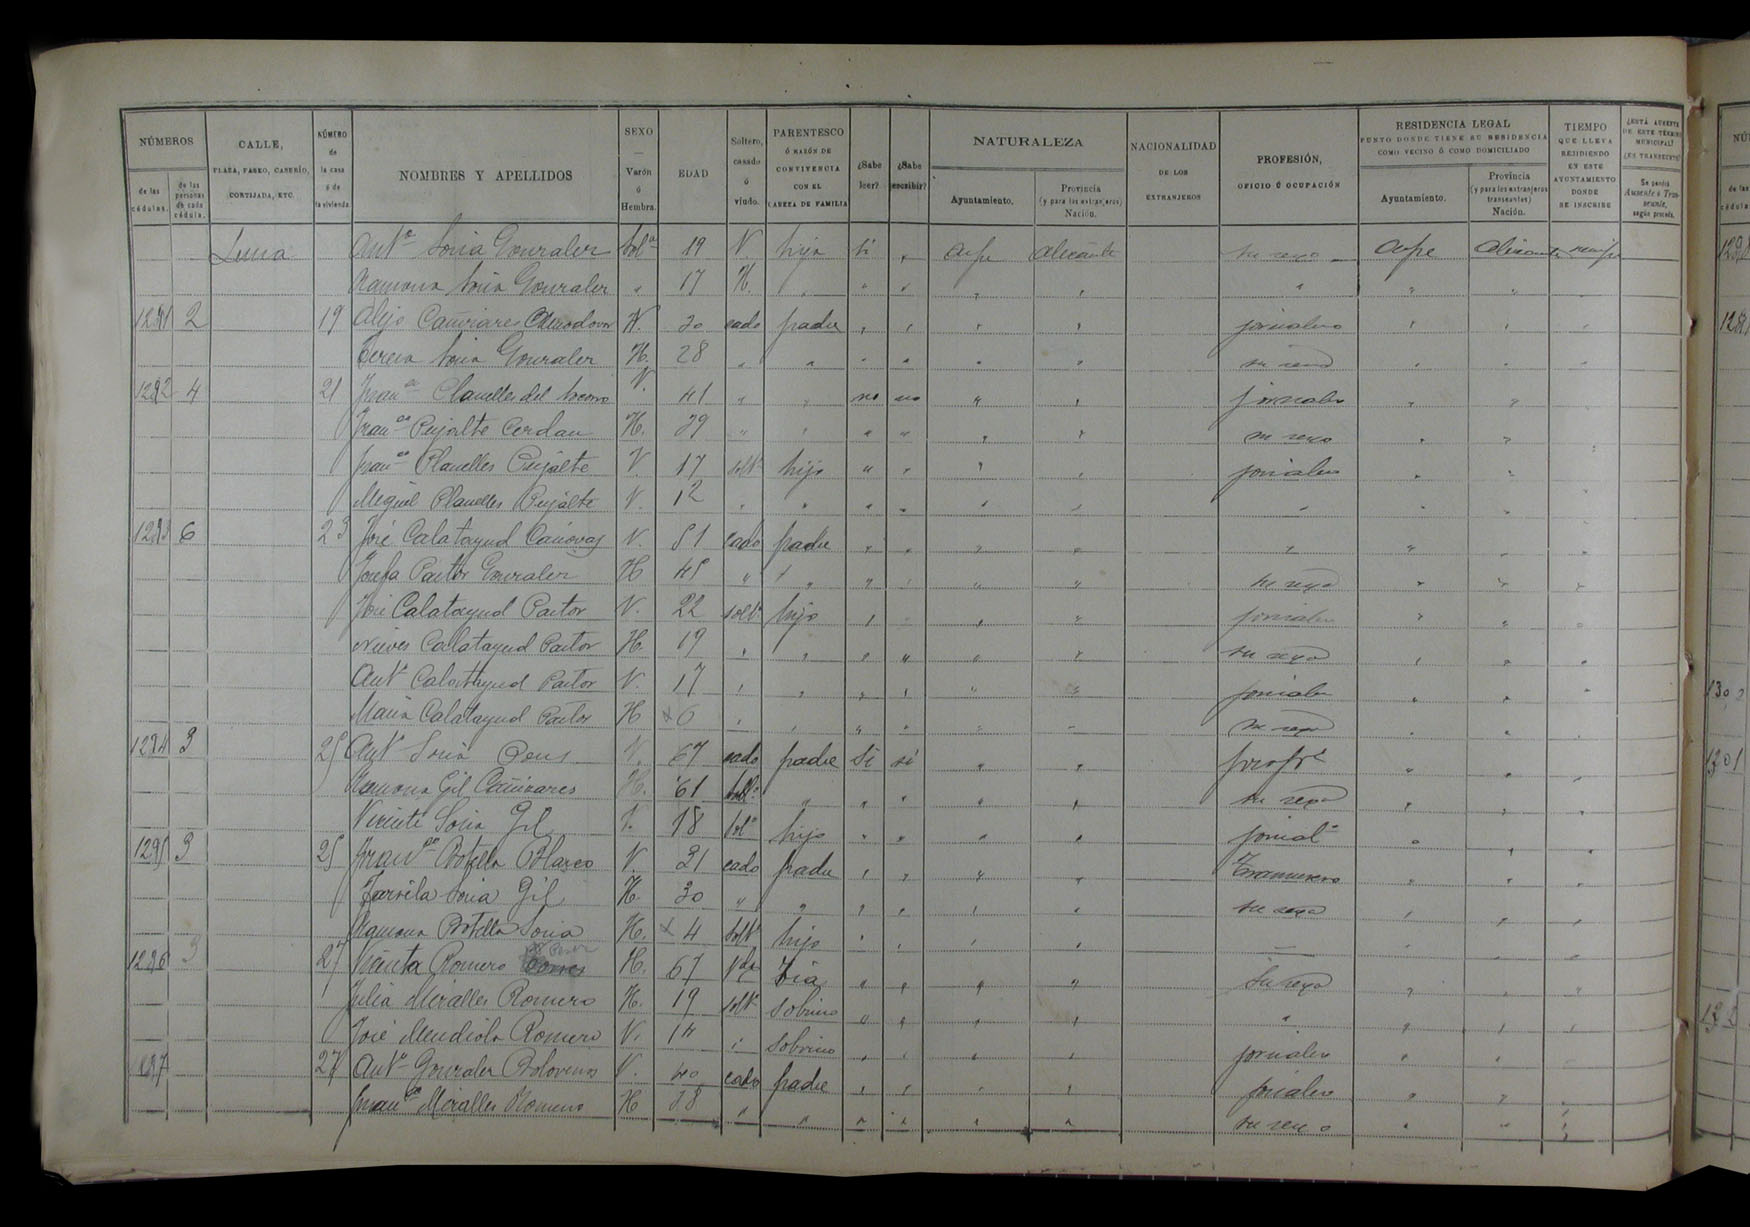 NÚMEROS
de las cédulas.
de las personas de cada cédula.
CALLE,
PLAZA, PASEO, CASERÍO, CORTIJADA, ETC.
NÚMERO de la casa ó de la vivienda.
NOMBRES Y APELLIDOS
SEXO — Varón ó Hembra.
EDAD
Soltero, casado ó viudo.
PARENTESCO Ó RAZÓN DE CONVIVENCIA CON EL CABEZA DE FAMILIA
¿Sabe leer?
¿Sabe escribir?
NATURALEZA
Ayuntamiento.
Provincia (y para los extranjeros) Nación.
NACIONALIDAD DE LOS EXTRANJEROS
PROFESIÓN, OFICIO Ó OCUPACIÓN
RESIDENCIA LEGAL
PUNTO DONDE TIENE SU RESIDENCIA COMO VECINO Ó COMO DOMICILIADO
Ayuntamiento.
Provincia (y para los extranjeros transeuntes) Nación.
TIEMPO QUE LLEVA RESIDIENDO EN ESTE AYUNTAMIENTO DONDE SE INSCRIBE
¿ESTÁ AUSENTE DE ESTE TÉRMINO MUNICIPAL? ¿ES TRANSEUNTE?
Se pondrá Ausente ó Transeunte, según proceda.
Luna Antº Soria Gonzalez Solº 19 V. hijo si " Aspe Alicante su sexo Aspe Alicante
Ramona Soria Gonzalez " 17 H. " " " " " " " "
1291 2 19 Alejo Cañizares 30 cado padre " " " " jornalero " " "
Teresa Soria Gonzalez H. 28 " " " " " " su sexo " " "
1292 4 21 Franco Planelles del V. 41 " " no no " " jornalero " " "
Franca Pujalte Cerdan H. 39 " " " " " " su sexo " " "
Franco Planelles Pujalte V. 17 soltº hijo " " " " jornalero " " "
Miguel Planelles Pujalte V. 12 " " " " " " " " " "
1293 6 23 José Calatayud Cánovas V. 51 cado padre " " " " " " " "
Josefa Pastor Gonzalez H 45 " " " " " " su sexo " " "
José Calatayud Pastor V. 22 soltº hijo " " " " jornalero " " "
Nieves Calatayud Pastor H. 19 " " " " " " su sexo " " "
Antº Calatayud Pastor V. 17 " " " " " " jornaler " " "
Maria Calatayud Pastor H x 6 " " " " " " su sexo " " "
1294 3 25 Antº Soria V. 67 cado padre Si si " " " " "
Ramona Gil Cañizares H. 61 " " " " " su sexo " " "
Vicente Soria Gil V. 18 solº hijo " " " " jornalº " " "
1295 3 25 Franco Botella Blasco V. 31 cado padre " " " " " " "
Soria Gil H. 30 " " " " " " su sexo " " "
Ramona Botella Soria H. x 4 soltº hijo " " " " — " " "
1296 3 27 Vicenta Romero H. 67 Vda Tia " " " " Su sexo " " "
Julia Miralles Romero H. 19 soltº sobrino " " " " " " " "
José Mendiola Romero V. 14 " sobrino " " " " jornalero " " "
1297 27 Antº Gonzalez V. 40 cado padre " " " " jornalero " " "
Franca Miralles Romero H 38 " " " " " " su sexo " " "